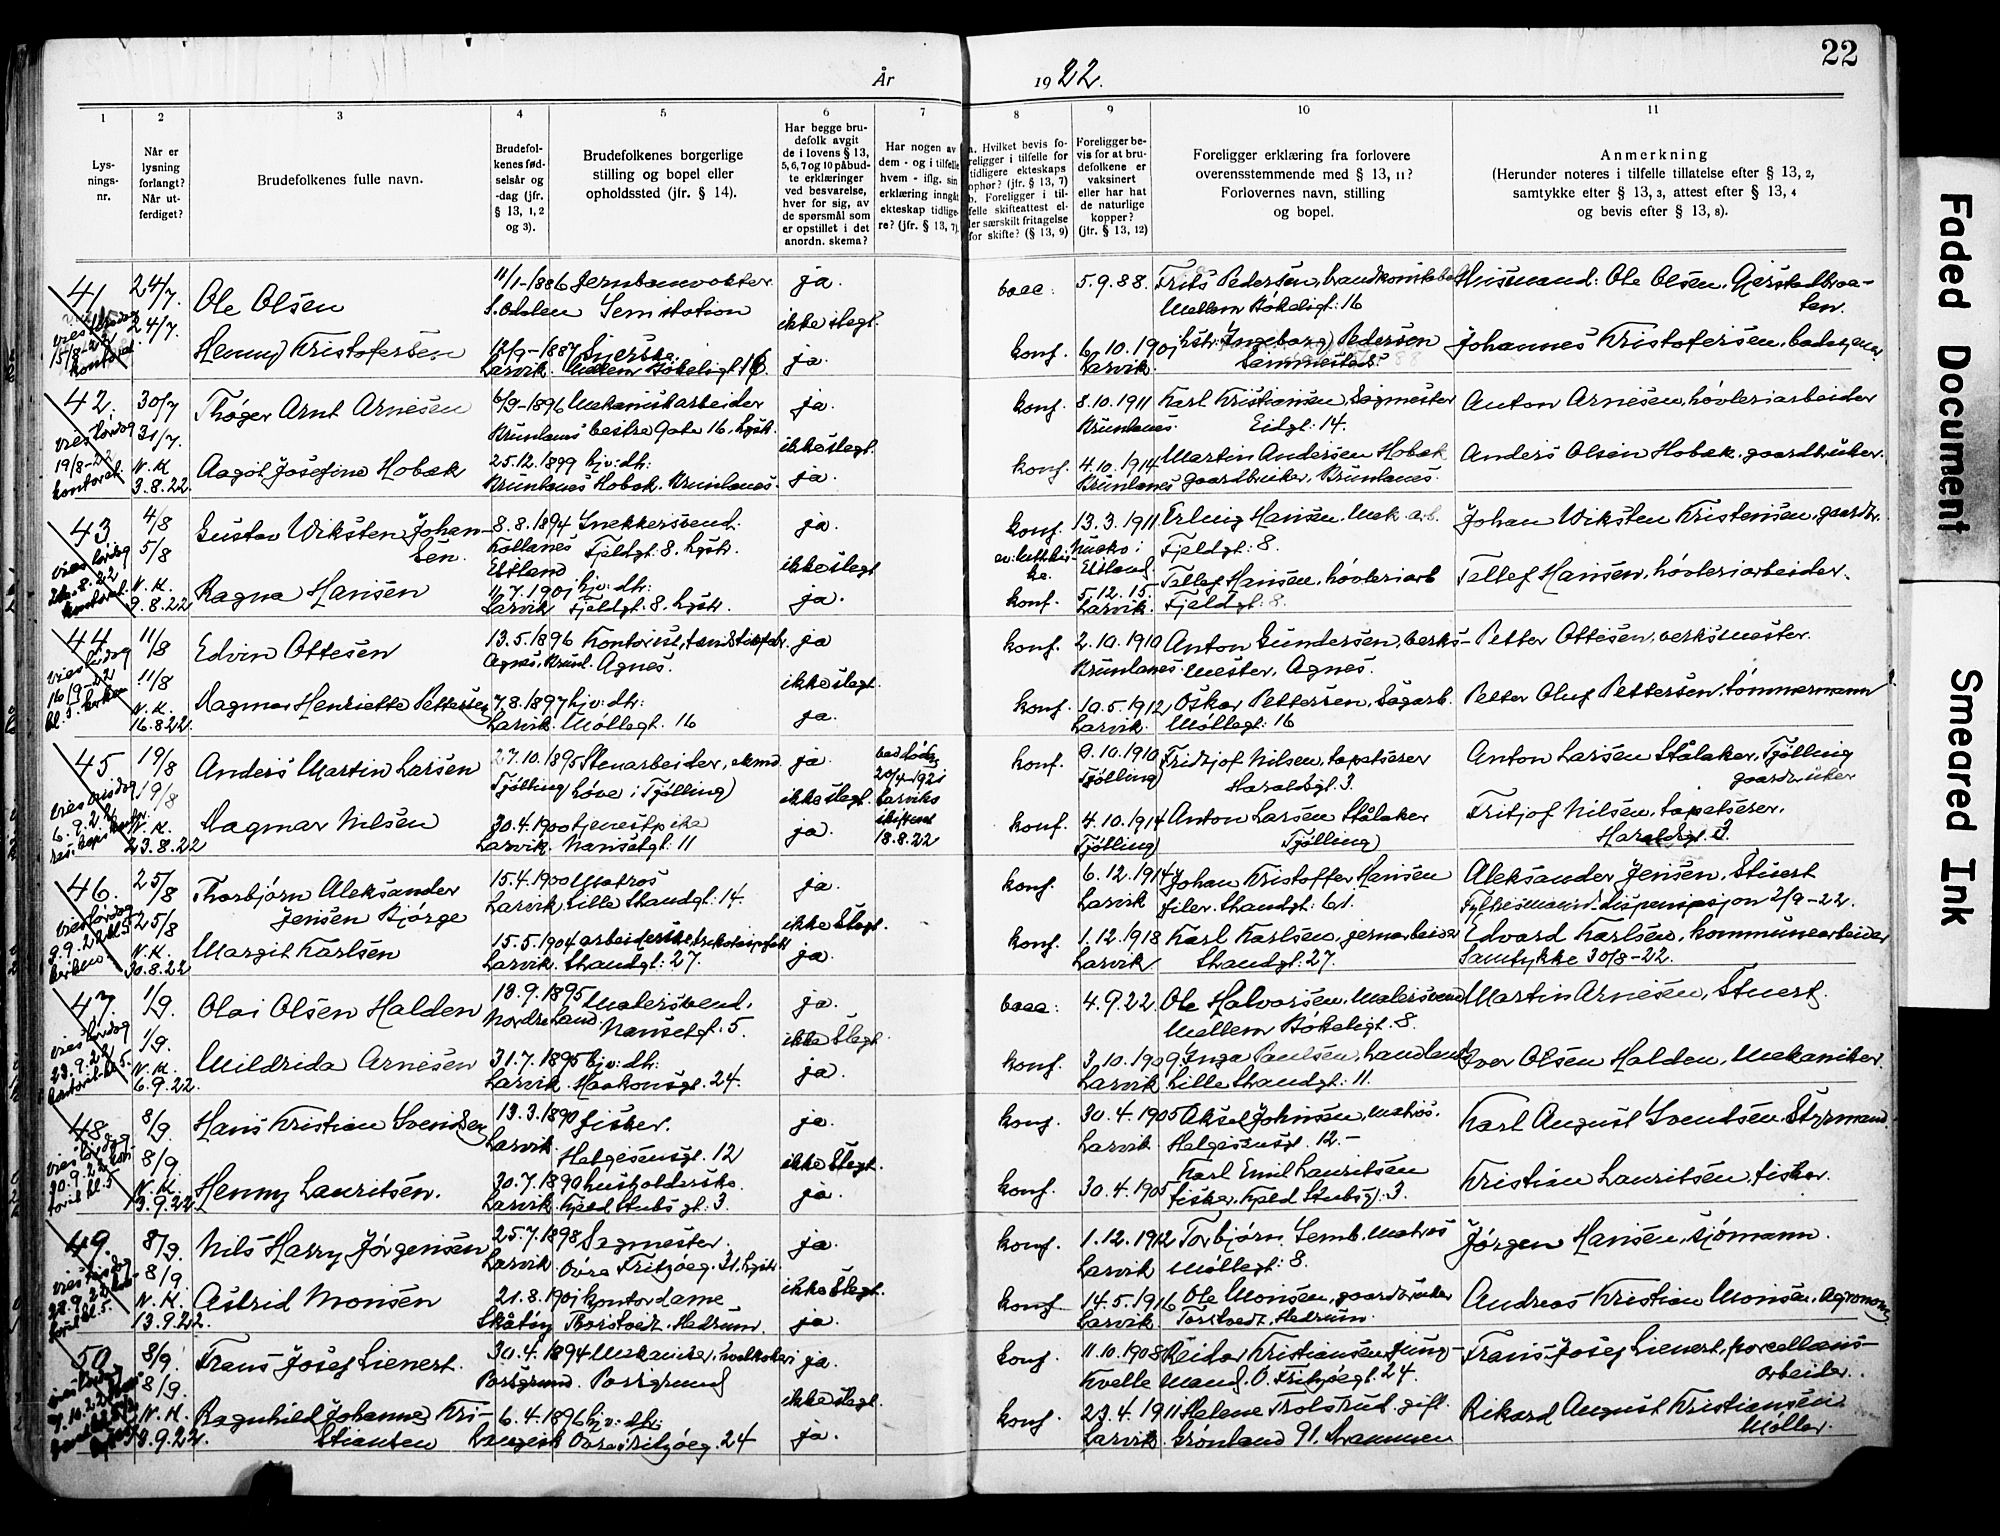 22
År 1922.
1 2 3 4 5 6 7 8 9 10 11
Lys-
nings-
nr.
Når er
lysning
forlangt?
Når ut-
ferdiget?
Brudefolkenes fulle navn.
Brudefol-
kenes fød-
selsår og
-dag (jfr.
§ 13, 1, 2
og 3).
Brudefolkenes borgerlige
stilling og bopel eller
opholdssted (jfr. § 14).
Har begge bru-
defolk avgit
de i lovens § 13,
5, 6, 7 og 10 påbud-
te erklæringer
ved besvarelse,
hver for sig, av
de spørsmål som
er opstillet i det
anordn. skema?
Har nogen av
dem - og i tilfelle
hvem - iflg. sin
erklæring inngåt
ekteskap tidlige-
re? (jfr. § 13, 7).
a. Hvilket bevis fo-
religger i tilfelle for
tidligere ekteskaps
ophør? (jfr. § 13, 7)
b. Foreligger i til-
felle skifteattest el-
ler særskilt fritagelse
for skifte? (§ 13, 9)
Foreligger be-
vis for at bru-
defolkene er
vaksinert
eller har hat
de naturlige
kopper?
(jfr. § 13, 12)
Foreligger erklæring fra forlovere
overensstemmende med § 13, 11?
Forlovernes navn, stilling
og bopel.
Anmerkning
(Herunder noteres i tilfelle tillatelse efter § 13, 2,
samtykke efter § 13, 3, attest efter § 13, 4
og bevis efter § 13, 8).
41 24/7. Ole Olsen 11/1-1886 Jernbanevokter ja. vacc. 5.9.88. Frits Pedersen, brandkonstabel Husmand: Ole Olsen,
15/8-22 24/7. S. Odalen Semstation ikke slegt. Mellem Bøkeligt: 16
kontoret Henny Kristofersen 1887 ja. konf. 6.10.1901 Ingeborg Pedersen Johannes Kristofersen,
Larvik. Mellem Bøkeligt 16. Larvik.
42. 30/7 Thøger Arnt Arnesen 6/9-1896 Mekanisk arbeider ja. konf. 8.10.1911 Karl Kristiansen, Sagmester Anton Arnesen, høvleriarbeider
vies lørdag 31/7. Brunlanes Vestre Gate 16, Lgstr. ikke slegt. Brunlanes. Eidgt: 14.
19/8-22 N.K. Aagot Josefine Hobæk 25.12.1899 hjv: dtr: konf. 4.10.1914 Martin Andersen Hobæk Anders Olsen Hobæk, gaardbruker.
kontoret 3.8.22. Brunlanes Hobæk. Brunlanes. ja. Brunlanes gaardbruker, Brunlanes.
43 4/8 Gustav Wiksten Johan- 8.8.1894 Snekkersvend. ja. konf. 13.3.1911 Erling Hansen. Mek arb. Johan Wiksten Kristensen, gaardbr.
vies lørdag 5/8 sen. Estland Fjeldgt: 8. Lgstr. ikke slegt Estland Fjeldgt: 8.
kontoret. N.K. Ragna Hansen 11/7.1901 hjv: dtr: ja. konf. 5.12.15. Tellef Hansen, høvleriarb Tellef Hansen, høvleriarbeider.
9.8.22 Larvik Fjeldgt. 8. Lgstr. Larvik. Fjeldgt: 8.
44 11/8 Edvin Ottesen 13.5.1896 Kontorist, ja konf. 2.10.1910 Anton Gundersen, verks- Petter Ottesen, verksmester.
vies lørdag 11/8 Agnes, Brunl. Agnes. ikke slegt. Brunlanes. mester, Agnes.
16/9-22 N.K. Dagmar Henriette Pettersen 7.8.1897 hjv: dtr: konf. 10.5.1912 Oskar Pettersen, Sagarb. Petter Oluf Pettersen, tømmermann
kl. 5. kirken 16.8.22. Larvik. Møllegt. 16 ja. Larvik. Møllegt: 16
45 19/8 Anders Martin Larsen 27.10.1895 Stenarbeider, ekmd. ja. 20/4 1921 konf. 9.10.1910 Fridtjof Nilsen, tapetserer Anton Larsen Stålaker, Tjølling
19/8 Tjølling Løve i Tjølling ikke slegt. Larviks Tjølling Haraldsgt. 3. gaardbruker
6.9.22 N.K. Dagmar Nilsen 30.4.1900 tjenestpike ja. konf. 4.10.1914 Anton Larsen Stålaker Fritjof Nilsen, tapetserer.
23.8.22 Larvik. Nansetgt. 11 18.8.22 Tjølling Tjølling Haraldsgt. 3.
46. 25/8 Thorbjørn Aleksander 15.4.1900 Matros ja. konf. 6.12.1914 Johan Kristoffer Hansen Aleksander Jensen, Stuert
vies lørdag 25/8 Jensen Bjørge Larvik Lille Strandgt: 14. ikke Slegt. Larvik filer. Strandgt: 61. Fylkesmannd. dispensasjon 2/9-22.
9.9.22 kl. 5 N.K. Margit Karlsen 15.5.1904 arbeiderske, ja. konf. 1.12.1918 Karl Karlsen, jernarbeider Edvard Karlsen, kommunearbeider
kirken 30.8.22 Larvik. Strandgt: 27. Larvik Strandgt: 27. Samtykke 30/8-22.
47 1/9 Olai Olsen Halden 18.9.1895 Malersvend. ja. vacc: 4.9.22 Ole Halvorsen, Malersvend Martin Arnesen, Stuert.
vies lørdag 1/9. Nordre Land. Nansetgt. 5. ikke Slegt Mellem Bøkeligt. 8.
23.9.22 N.K. Mildrida Arnesen 31.7.1895 hjv: dtr: ja. konf. 3.10.1909 Inga Paulsen, Iver Olsen Halden, Mekaniker.
6.9.22. Larvik. Haakonsgt. 24. Larvik. Lille Strandgt: 11.
48 8/9. Hans Kristian Svendsen 13.3.1890 fisker. ja. konf. 30.4.1905 Aksel Johnsen, matros. Karl August Svendsen, Styrmand
vies lørdag 8/9. Larvik. Helgesensgt. 12 ikke Slegt. Larvik. Helgesensgt. 12.-
30.9.22 N.K. Henny Lauritsen. 30.7.1890 husholderske. ja. konf. 30.4.1905 Karl Emil Lauritsen Kristian Lauritsen, fisker.
kl. 5 13.9.22 Larvik. Kjeld Stubsgt: 3 fisker, Kjeld Stubsgt: 3.
49. 8/9. Nils Harry Jørgensen 25.7.1898 Sagmester. ja. konf. 1.12.1912 Torbjørn Semb. Matros Jørgen Hansen, sjømann.
8/9. Larvik. Øvre Fritzøeg. 31, Lgstr. ikke Slegt. Larvik Møllegt: 8.
N.K. Astrid Monsen 21.8.1901 kontordame ja. konf 14.5.1916 Ole Monsen, gaardbruker Andreas Kristian Monsen, Agronom
kl. 5. 13.9.22. Skåtøy Torstvedt, Hedrum. Larvik. Torstvedt, Hedrum.
50 8/9. Frans Josef Lienert. 30.4.1894 Mekaniker, ja. konf. 11.10.1908 Reidar Kristiansen, fyrsk- Frans Josef Lienert, porcellæns-
8/9. Porsgrund. Porsgrund ikke slegt. Kvelle Ø. Fritzøegt. 24. arbeider.
N.K. Ragnhild Johanne Kri- 6.4.1896 hjv: dtr: ja. konf. 23.4.1911 Helene Trolsrud. gift. Rikard August Kristiansen
13.9.22. stiansen Langesk Øvre Fritzøeg. 24 Larvik. Grønland 91, Drammen Møller.
Faded Document
Smeared Ink